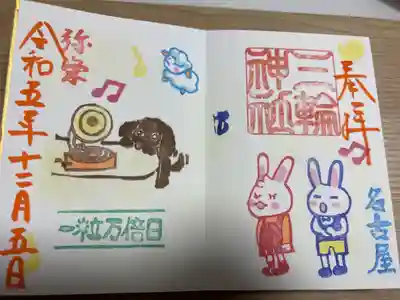 奉拝
三輪
神社
名古屋
弥栄
一粒万倍日
令和五年十二月五日